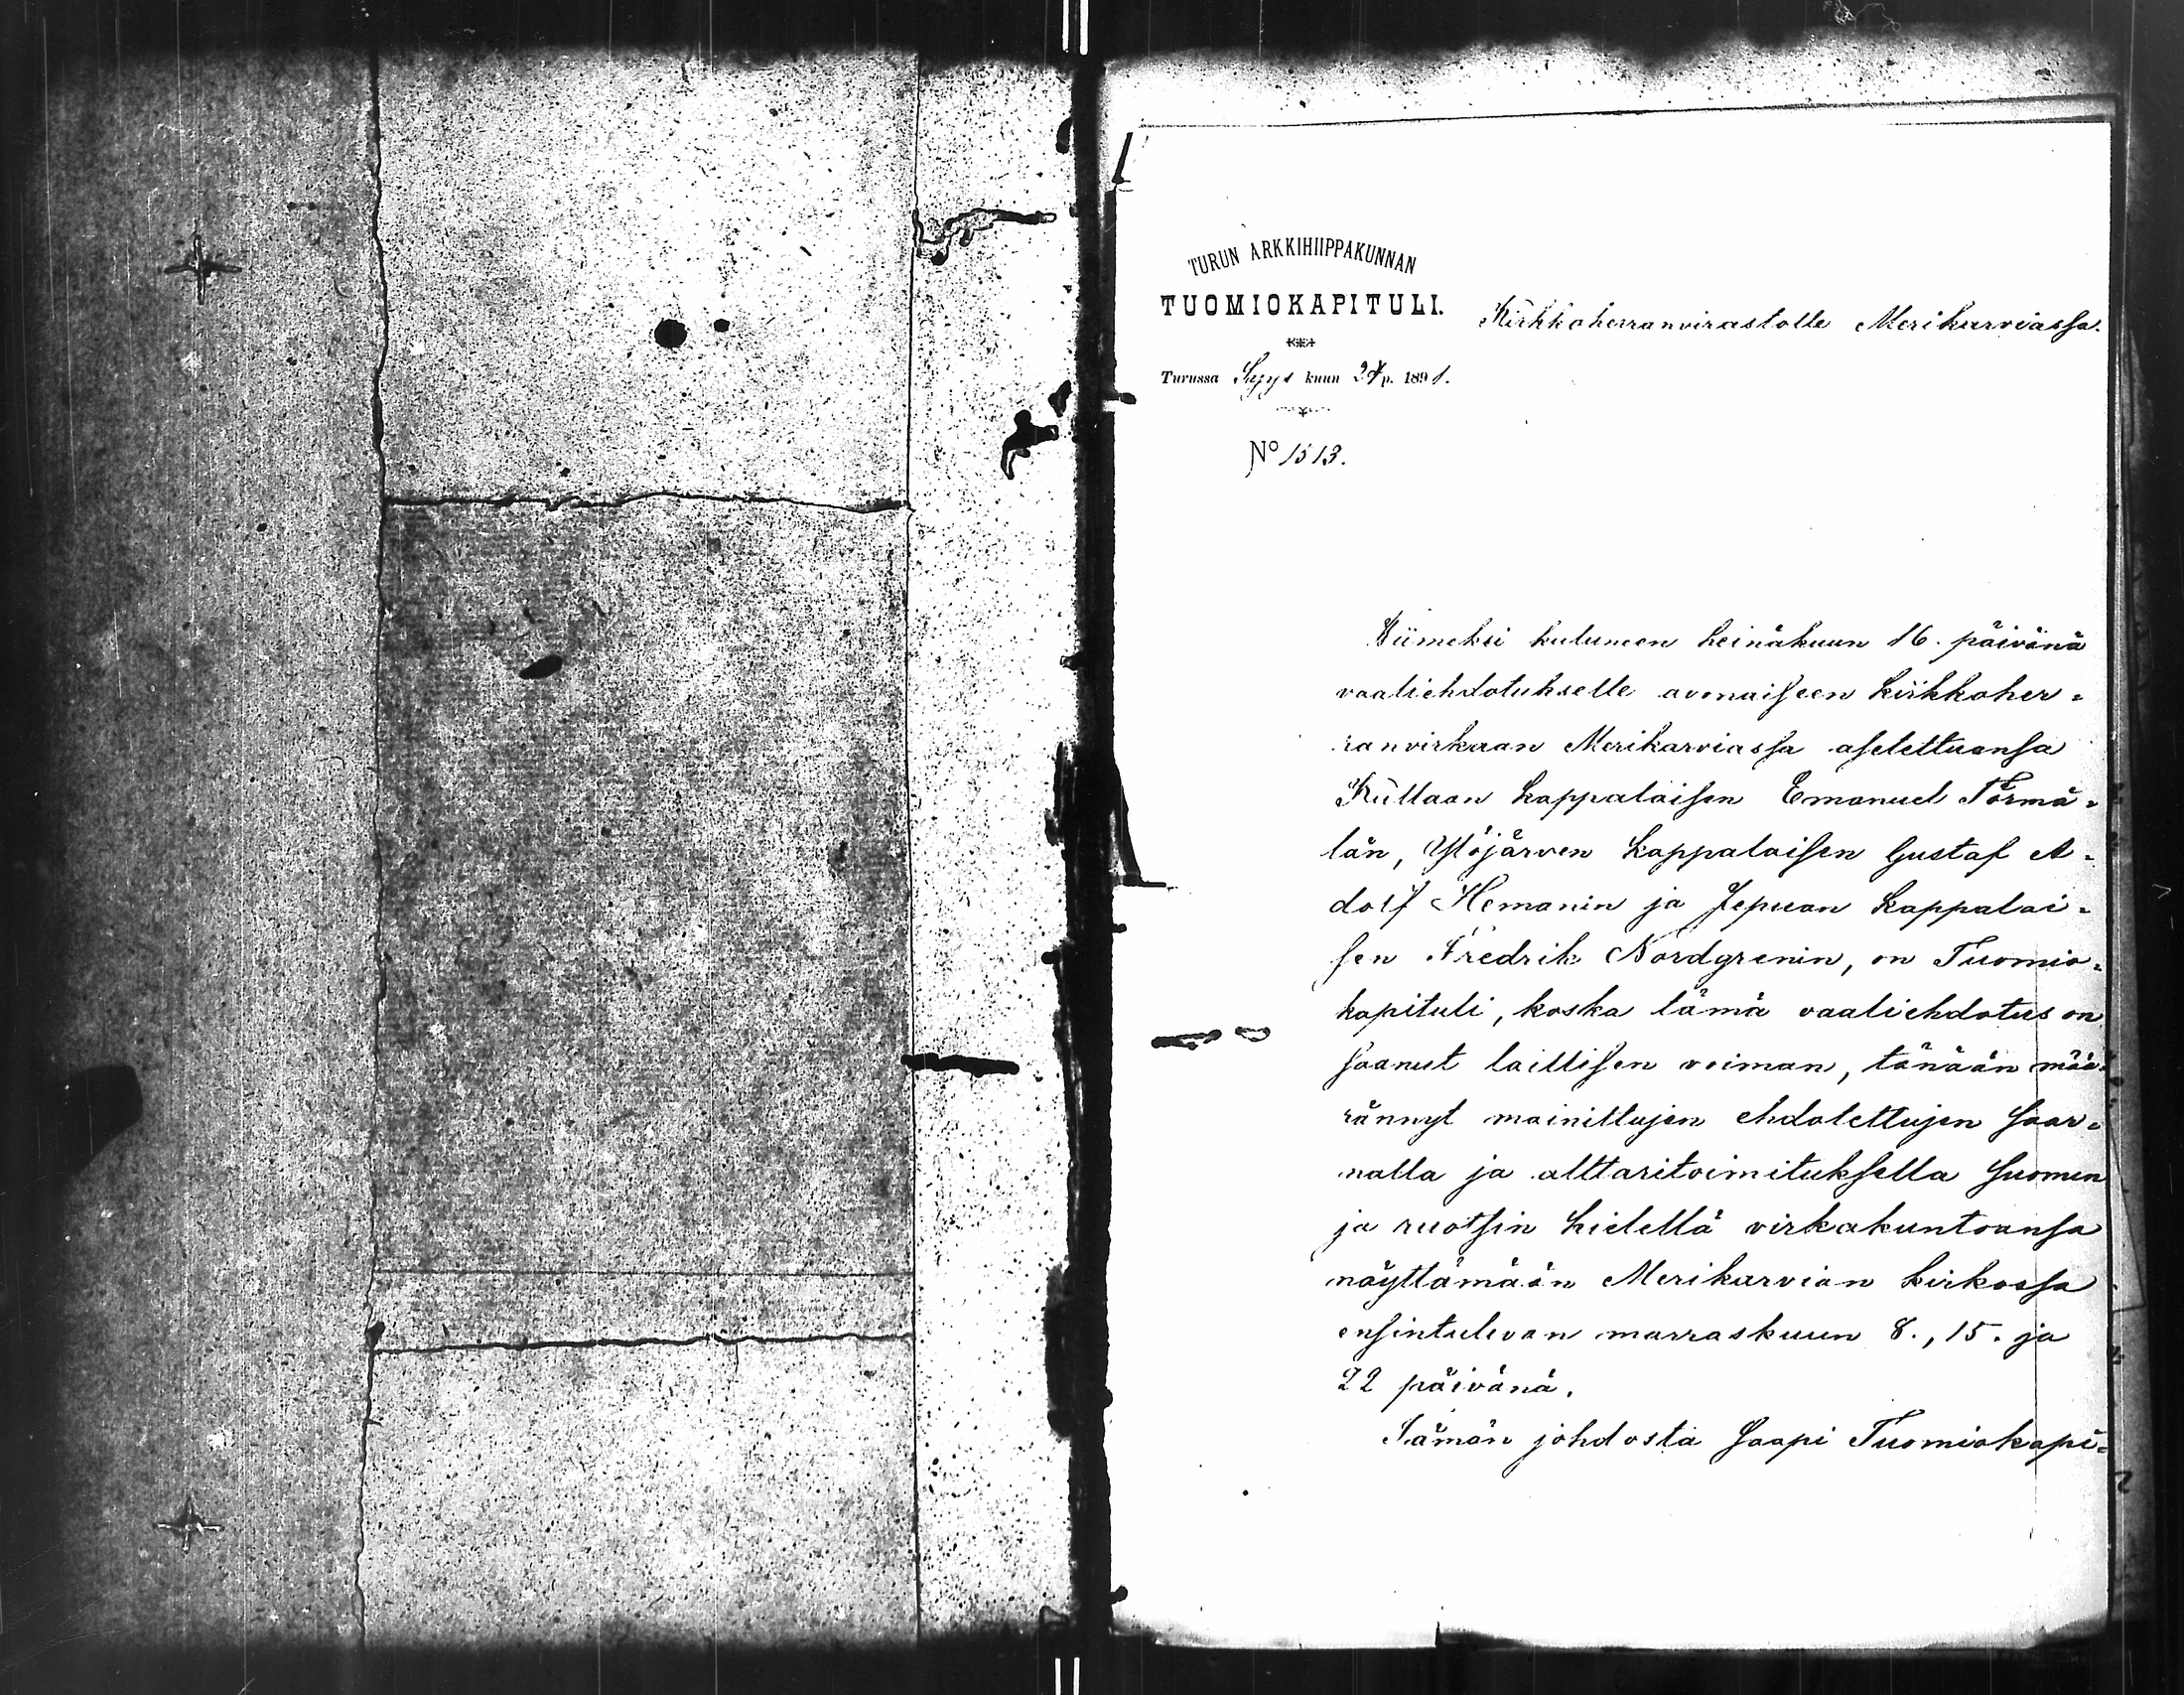 TURUN ARKKIHIIPPAKUNNAN
TUOMIOKAPITULI.
Kirkkoherranvirastolle Merikarviassa.
Turussa Syys kuun 24 p. 1891.
No 1513.
Viimeksi kuluneen heinäkuun 16. päivänä
vaaliehdotukselle avonaiseen kirkkoher-
ranvirkaan Merikarviassa asetettuansa
Kullaan kappalaisen Emanuel Törmä-
län, Ylöjärven kappalaisen Gustaf A-
dolf Hemanin ja Jepuan kappalai-
sen Fredrik Nordgrenin, on Tuomio-
kapituli, koska tämä vaaliehdotus on
saanut laillisen voiman, tänään mää-
rännyt mainittujen ehdotettujen saar-
nalla ja alttaritoimituksella suomen
ja ruotsin kielellä virkakuntoansa
näyttämään Merikarvian kirkossa
ensintulevan marraskuun 8., 15. ja
22 päivänä.
Tämän johdosta saapi Tuomiokapi-